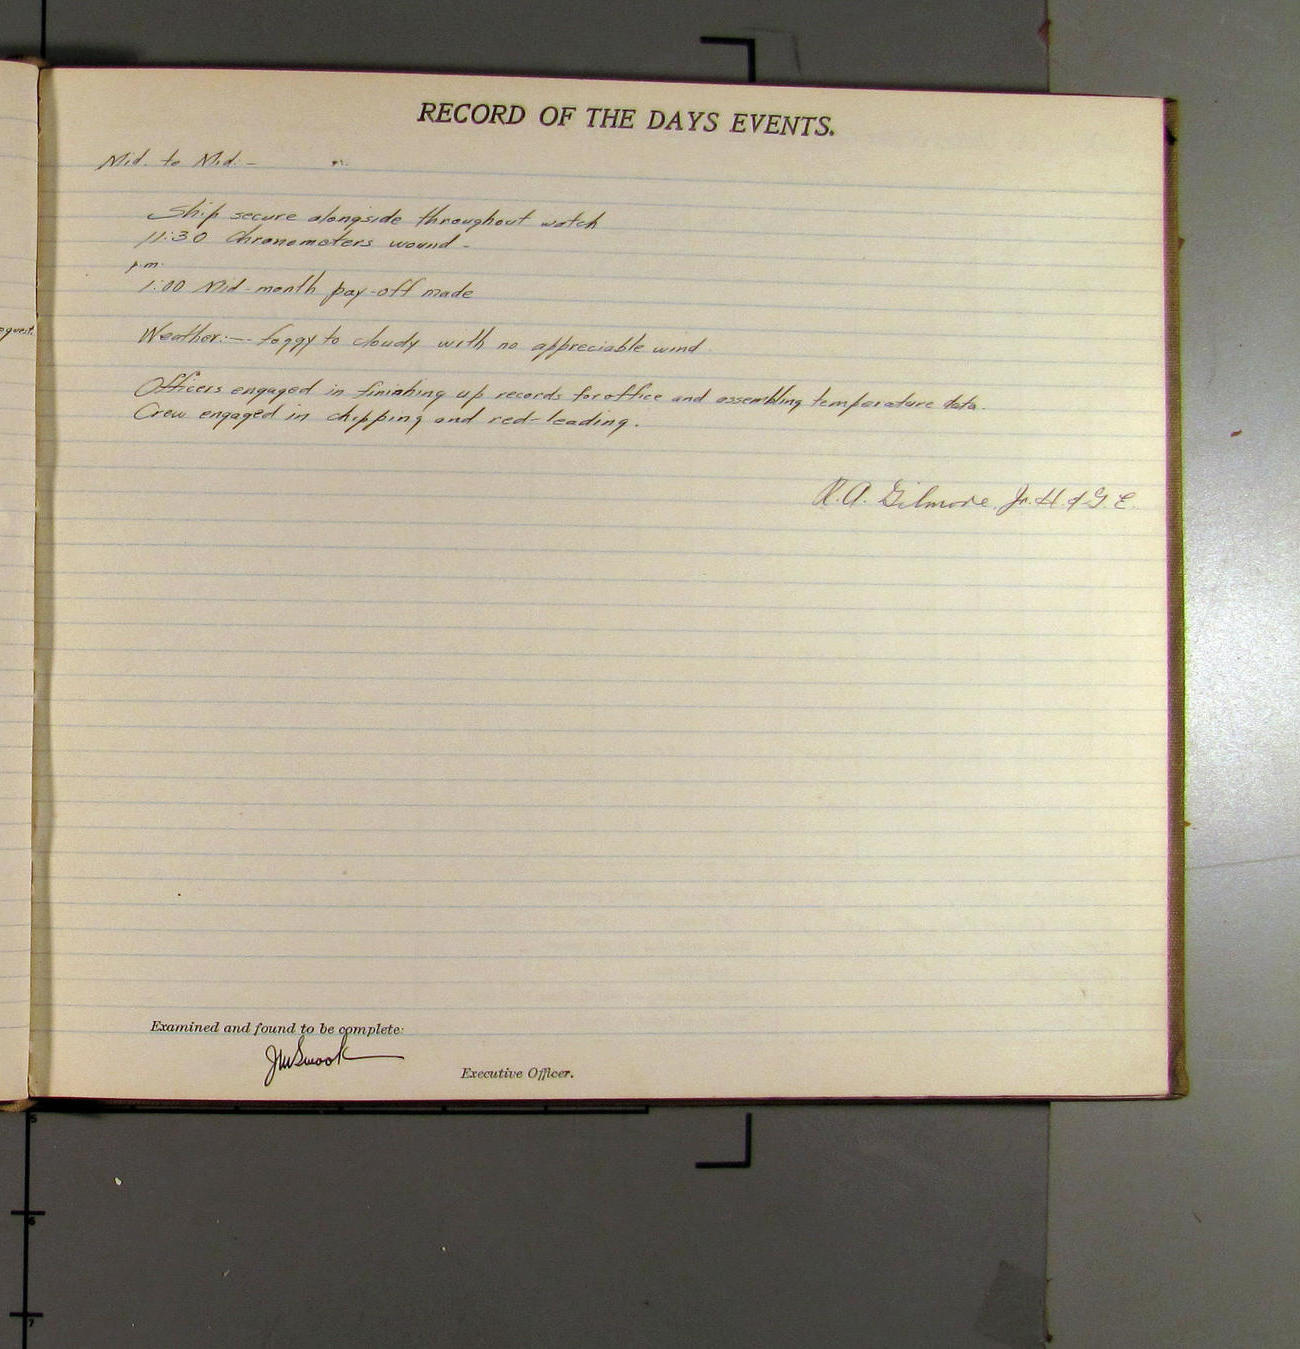 RECORD OF THE DAYS EVENTS.
Mid. to Mid. -
Ship secure alongside throughout watch
11:30 Chronometers wound -
p.m.
1:00 Mid-month pay-off made
Weather:— foggy to cloudy with no appreciable wind.
Officers engaged in finishing up records for office and assembling temperature data.
Crew engaged in chipping and red-leading.
R. A. Gilmore, Jr. H. & G. E.
Examined and found to be complete:
Executive Officer.
5
6
7